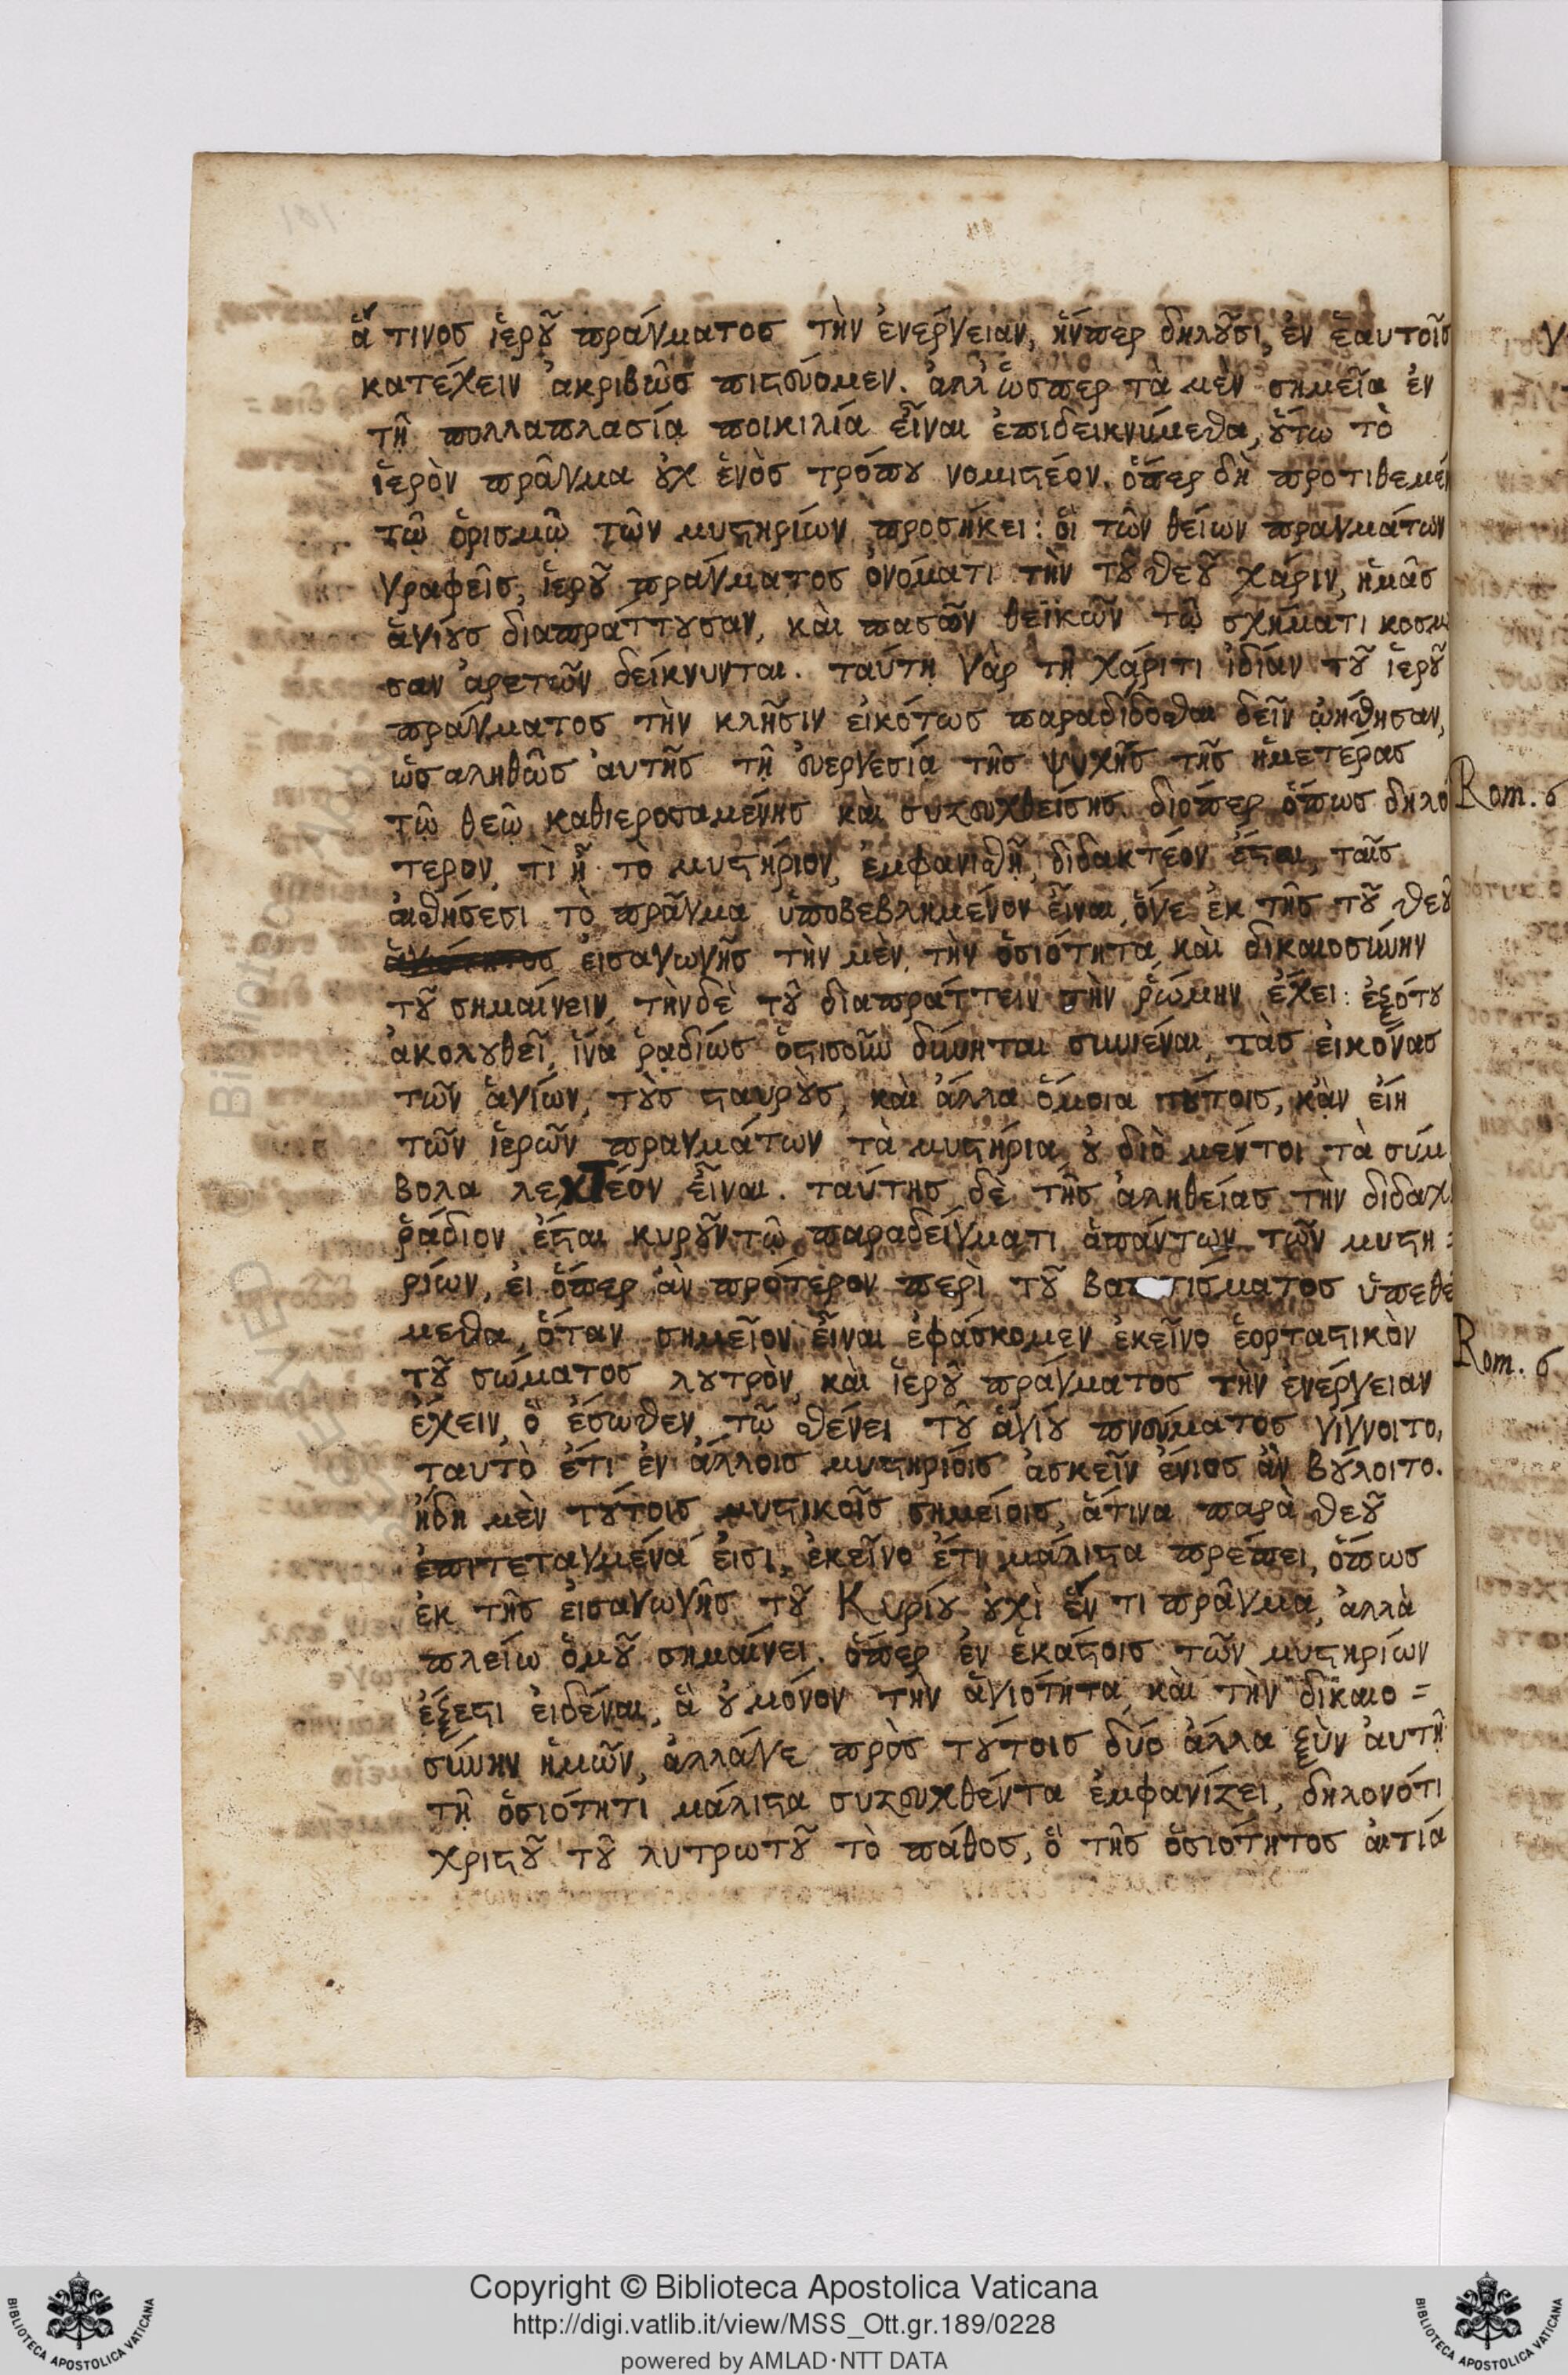 ἅ τινος ἱεροῦ πράγματος τὴν ἐνέργειαν, ἥνπερ δηλοῦσι, ἐν ἑαυτοῖς
κατέχειν ἀκριβῶς πιστεύομεν. ἀλλ' ὥσπερ τὰ μὲν σημεῖα ἐν
τῇ πολλαπλασίᾳ ποικιλίᾳ εἶναι ἐπιδεικνύμεθα, οὕτω τὸ
ἱερὸν πρᾶγμα οὐχ ἑνὸς τρόπου νομιστέον. ὅπερ δὴ προτιθεμέ
τῷ ὁρισμῷ τῶν μυστηρίων προσήκει: οἱ τῶν θείων πραγμάτων
γραφεῖς, ἱεροῦ πράγματος ὀνόματι τὴν τοῦ θεοῦ χάριν, ἡμᾶς
ἁγίους διαπράττουσαν, καὶ πασῶν θεϊκῶν τῷ σχήματι κοσμ
σαν ἀρετῶν δείκνυνται. ταύτῃ γὰρ τῇ χάριτι ἰδίαν τοῦ ἱεροῦ
πράγματος τὴν κλῆσιν εἰκότως παραδίδοσθαι δεῖν ᾠήθησαν,
ὡς αληθῶς αὐτῆς τῇ εὐεργεσίᾳ τῆς ψυχῆς τῆς ἡμετέρας
τῷ θεῷ καθιεροσαμένης καὶ συζευχθείσης. διόπερ ὅπως δηλό
τερον, τὶ ᾖ τὸ μυστήριον, ἐμφανισθῇ, διδακτέον ἔσται, ταῖς
αἰσθήσεσι τὸ πρᾶγμα ὑποβεβλημένον εἶναι, ὅγε ἐκ τῆς τοῦ θεοῦ
εἰσαγωγῆς τὴν μὲν, τὴν ὁσιότητα καὶ δικαιοσύνην
τοῦ σημαίνειν, τὴνδὲ τοῦ διαπράττειν τὴν ῥώμην ἔχει: ἐξότου
ἀκολουθεῖ, ἵνα ῥαδίως ὁστισοῦν δύνηται συνιέναι, τὰς εἰκόνας
τῶν ἁγίων, τοὺς σταυροὺς, καὶ ἄλλα ὅμοια τούτοις, κἂν εἴη
τῶν ἱερῶν πραγμάτων τὰ μυστήρια, οὐ διὸ μέντοι τὰ σύμ
βολα λεχΤέον εἶναι. ταύτης δὲ τῆς ἀληθείας τὴν διδαχ
ῥᾴδιον ἔσται κυροῦν τῷ παραδείγματι ἁπάντων τῶν μυστη=
ρίων, εἰ ὅπερ ἂν πρότερον περὶ τοῦ βαπτίσματος ὑπεθέ
μεθα, ὅταν σημεῖον εἶναι ἐφάσκομεν ἐκεῖνο ἑορταστικὸν
τοῦ σώματος λουτρὸν, καὶ ἱεροῦ πράγματος τὴν ἐνέργειαν
ἔχειν, ὃ ἔσωθεν τῷ σθένει τοῦ ἁγίου πνεύματος γίγνοιτο,
ταὐτὸ ἔτι ἐν ἄλλοις μυστηρίοις ἀσκεῖν ἔνιος ἂν βούλοιτο.
ἤδη μὲν τούτοις μυστικοῖς σημείοις, ἅτινα παρὰ θεοῦ
ἐπιτεταγμένα εἰσι, ἐκεῖνο ἔτι μάλιστα πρέπει, ὅπως
ἐκ τῆς εἰσαγωγῆς τοῦ Κυρίου οὐχὶ ἕν τι πρᾶγμα, ἀλλὰ
πλείω ὁμοῦ σημαίνει. ὅπερ ἐν ἑκάστοις τῶν μυστηρίων
ἔξεστι εἰδέναι, ἃ οὐ μόνον τὴν ἁγιότητα, καὶ τὴν δικαιο=
σύνην ἡμῶν, ἀλλάγε πρὸς τούτοις δύο ἄλλα ξὺν αὐτῇ
τῇ ὁσιότητι μάλιστα συζευχθέντα ἐμφανίζει, δηλονότι
χριστοῦ τοῦ λυτρωτοῦ τὸ πάθος, ὃ τῆς ὁσιότητος αἰτία
Rom. 6
Rom. 6.
Copyright © Biblioteca Apostolica Vaticana
http://digi.vatlib.it/view/MSS_Ott.gr.189/0228
powered by AMLAD·NTT DATA
BIBLIOTECA APOSTOLICA VATICANA
BIBLIOTECA APOSTOLICA VATICANA